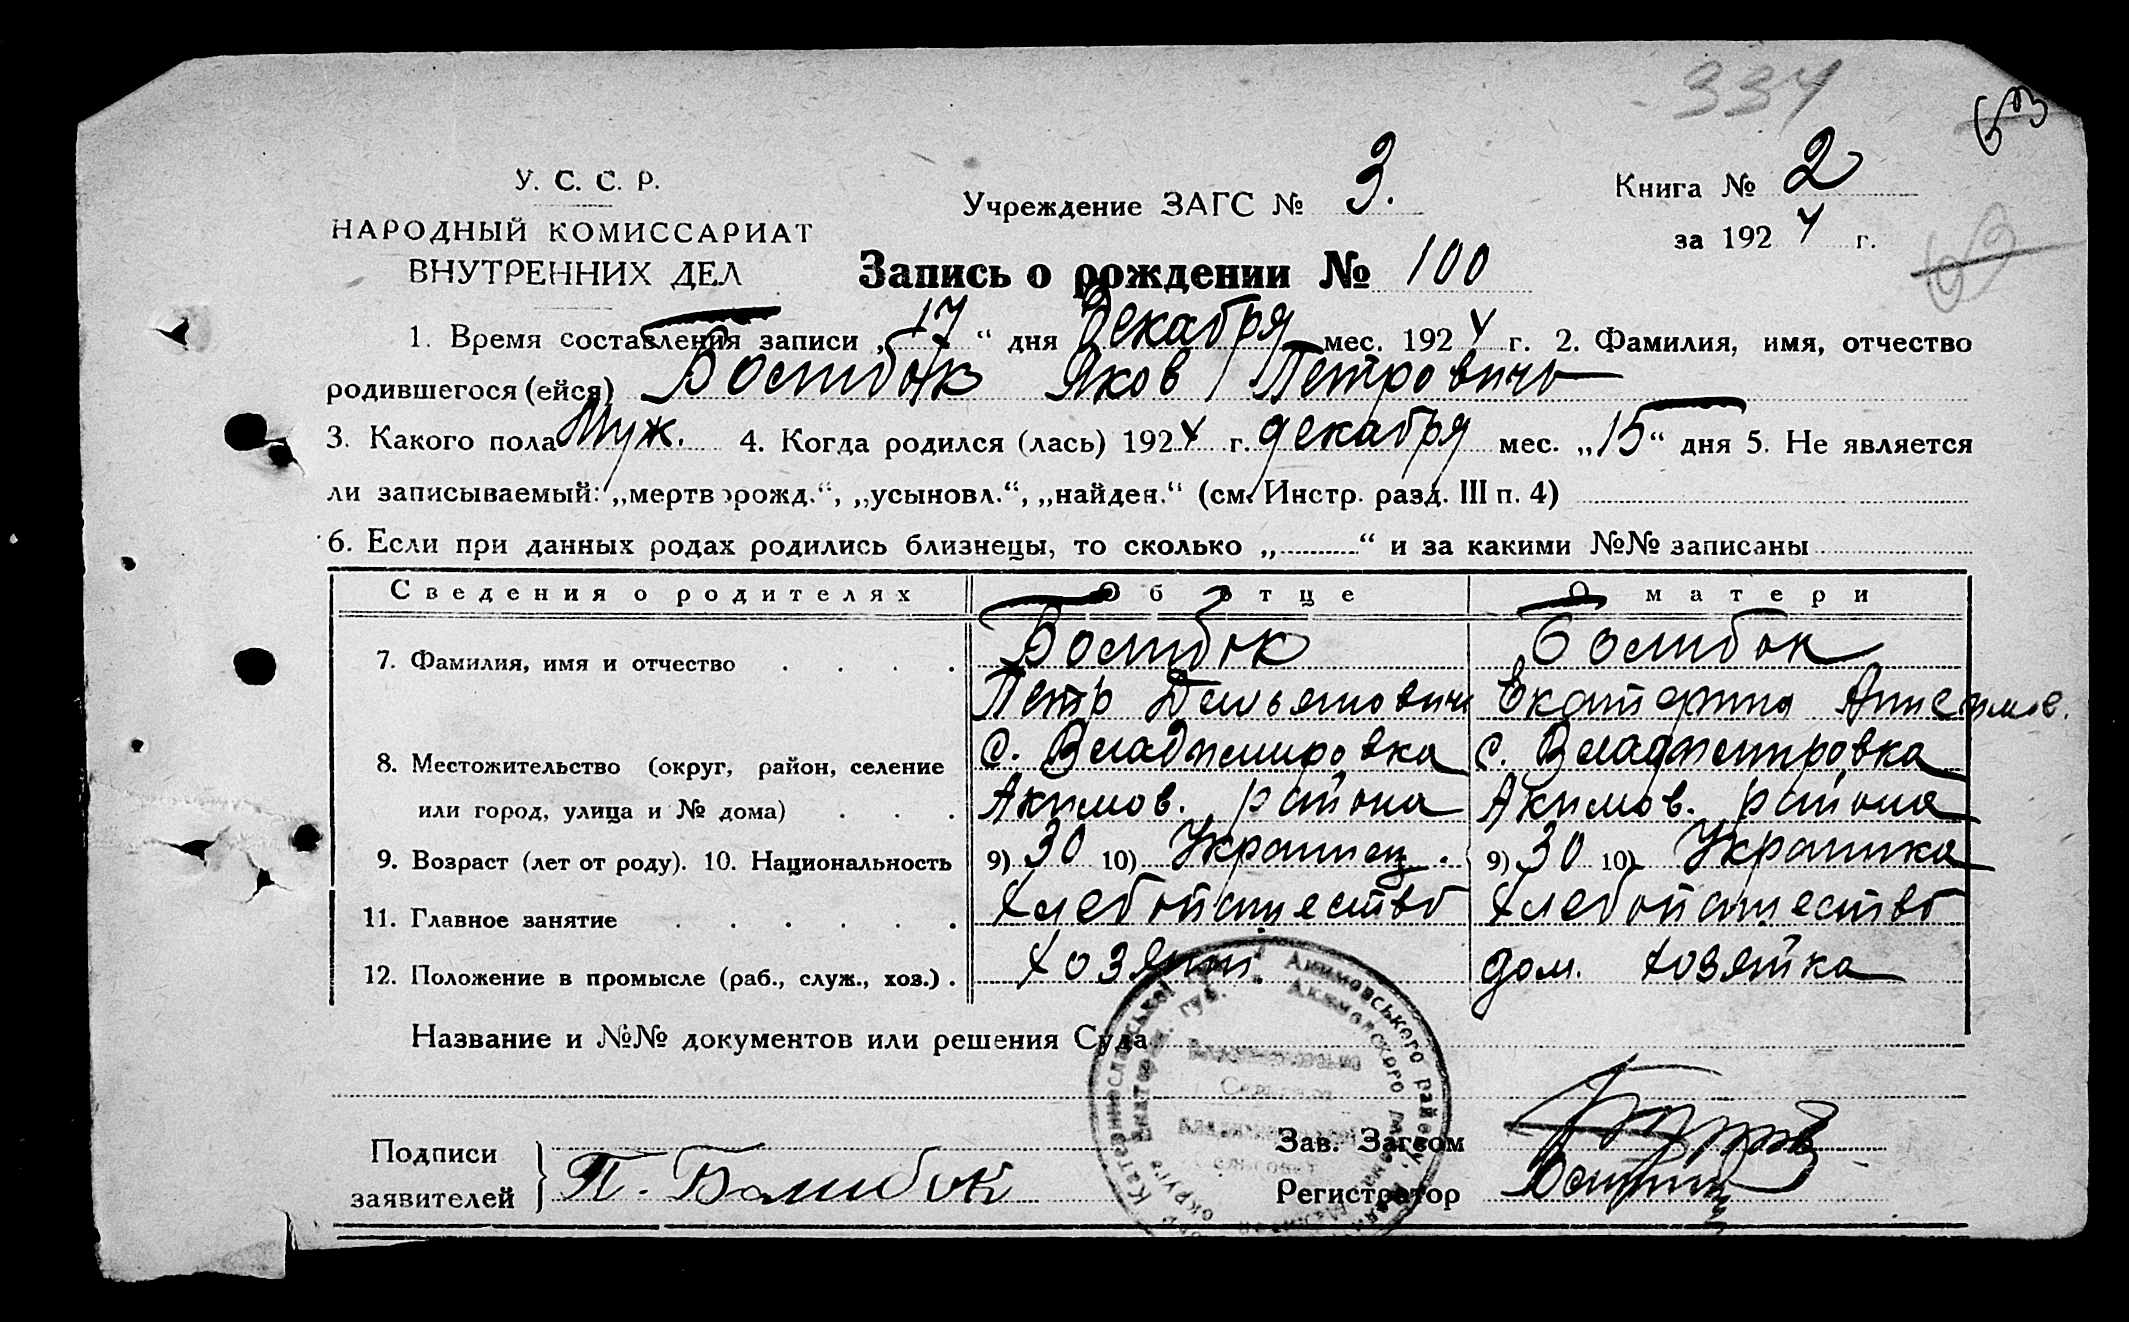 334
63
У. С. С. Р.
НАРОДНЫЙ КОМИССАРИАТ
ВНУТРЕННИХ ДЕЛ
Учреждение ЗАГС № 3.
Книга № 2
за 1924 г.
63
Запись о рождении № 100
1. Время составления записи „17“ дня Декабря мес. 1924 г. 2. Фамилия, имя, отчество
родившегося (ейся) Болибок Яков Петровичь
3. Какого пола Муж. 4. Когда родился (лась) 1924 г. декабря мес. „15“ дня 5. Не является
ли записываемый: „мертворожд.“, „усыновл.“, „найден.“ (см. Инстр. разд. III п. 4)
6. Если при данных родах родились близнецы, то сколько „..........“ и за какими №№ записаны
Сведения о родителях Об отце О матери
7. Фамилия, имя и отчество . . . . Болибок Болибок
Петр Демьянович Екатерина
8. Местожительство (округ, район, селение с. Владимировка с. Владимировка
или город, улица и № дома) . . . Акимов. района Акимов. района
9. Возраст (лет от роду). 10. Национальность 9) 30 10) Украинец. 9) 30 10) Украинка
11. Главное занятие . . . . . . Хлебопашество Хлебопашество
12. Положение в промысле (раб., служ., хоз.) . Хозяин. дом. хозяйка
Название и №№ документов или решения Суда
Акимовського району
Акимовского района
Подписи
заявителей } П. Болибок
Зав. Загсом
Регистратор